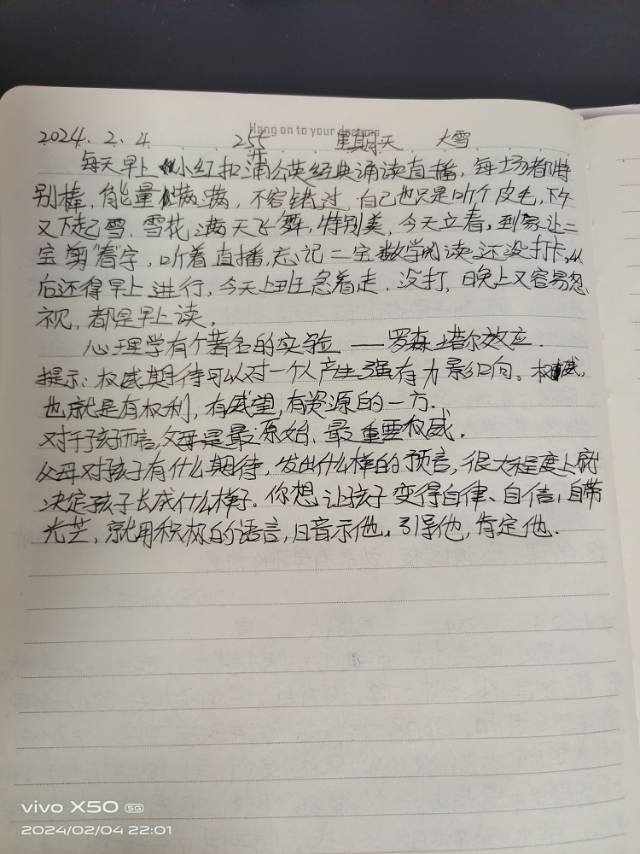 Hang on to your dreams
2024.2.4 255 星期天 大雪
开
每天早上小红和蒲公英经典诵读直播,每场都特
别棒,能量满满,不容错过,自己也只是听个皮毛,下午
又下起雪,雪花满天飞舞,特别美,今天立春,到家让二
宝剪"春"字,听着直播,忘记二宝数学阅读还没打卡,以
后还得早上进行,今天上班急着走,没打,晚上又容易忽
视,都是早上读。
心理学有个著名的实验——罗森塔尔效应.
提示:权威期待可以对一个人产生强有力影响。权威,
也就是有权利,有威望,有资源的一方.
对于孩子而言,父母是最原始、最重要权威.
父母对孩子有什么期待,发出什么样的预言,很大程度上就
决定孩子长成什么样子.你想让孩子变得自律、自信,自带
光芒,就用积极的语言,暗示他,引导他,肯定他.
vivo X50 5G
2024/02/04 22:01